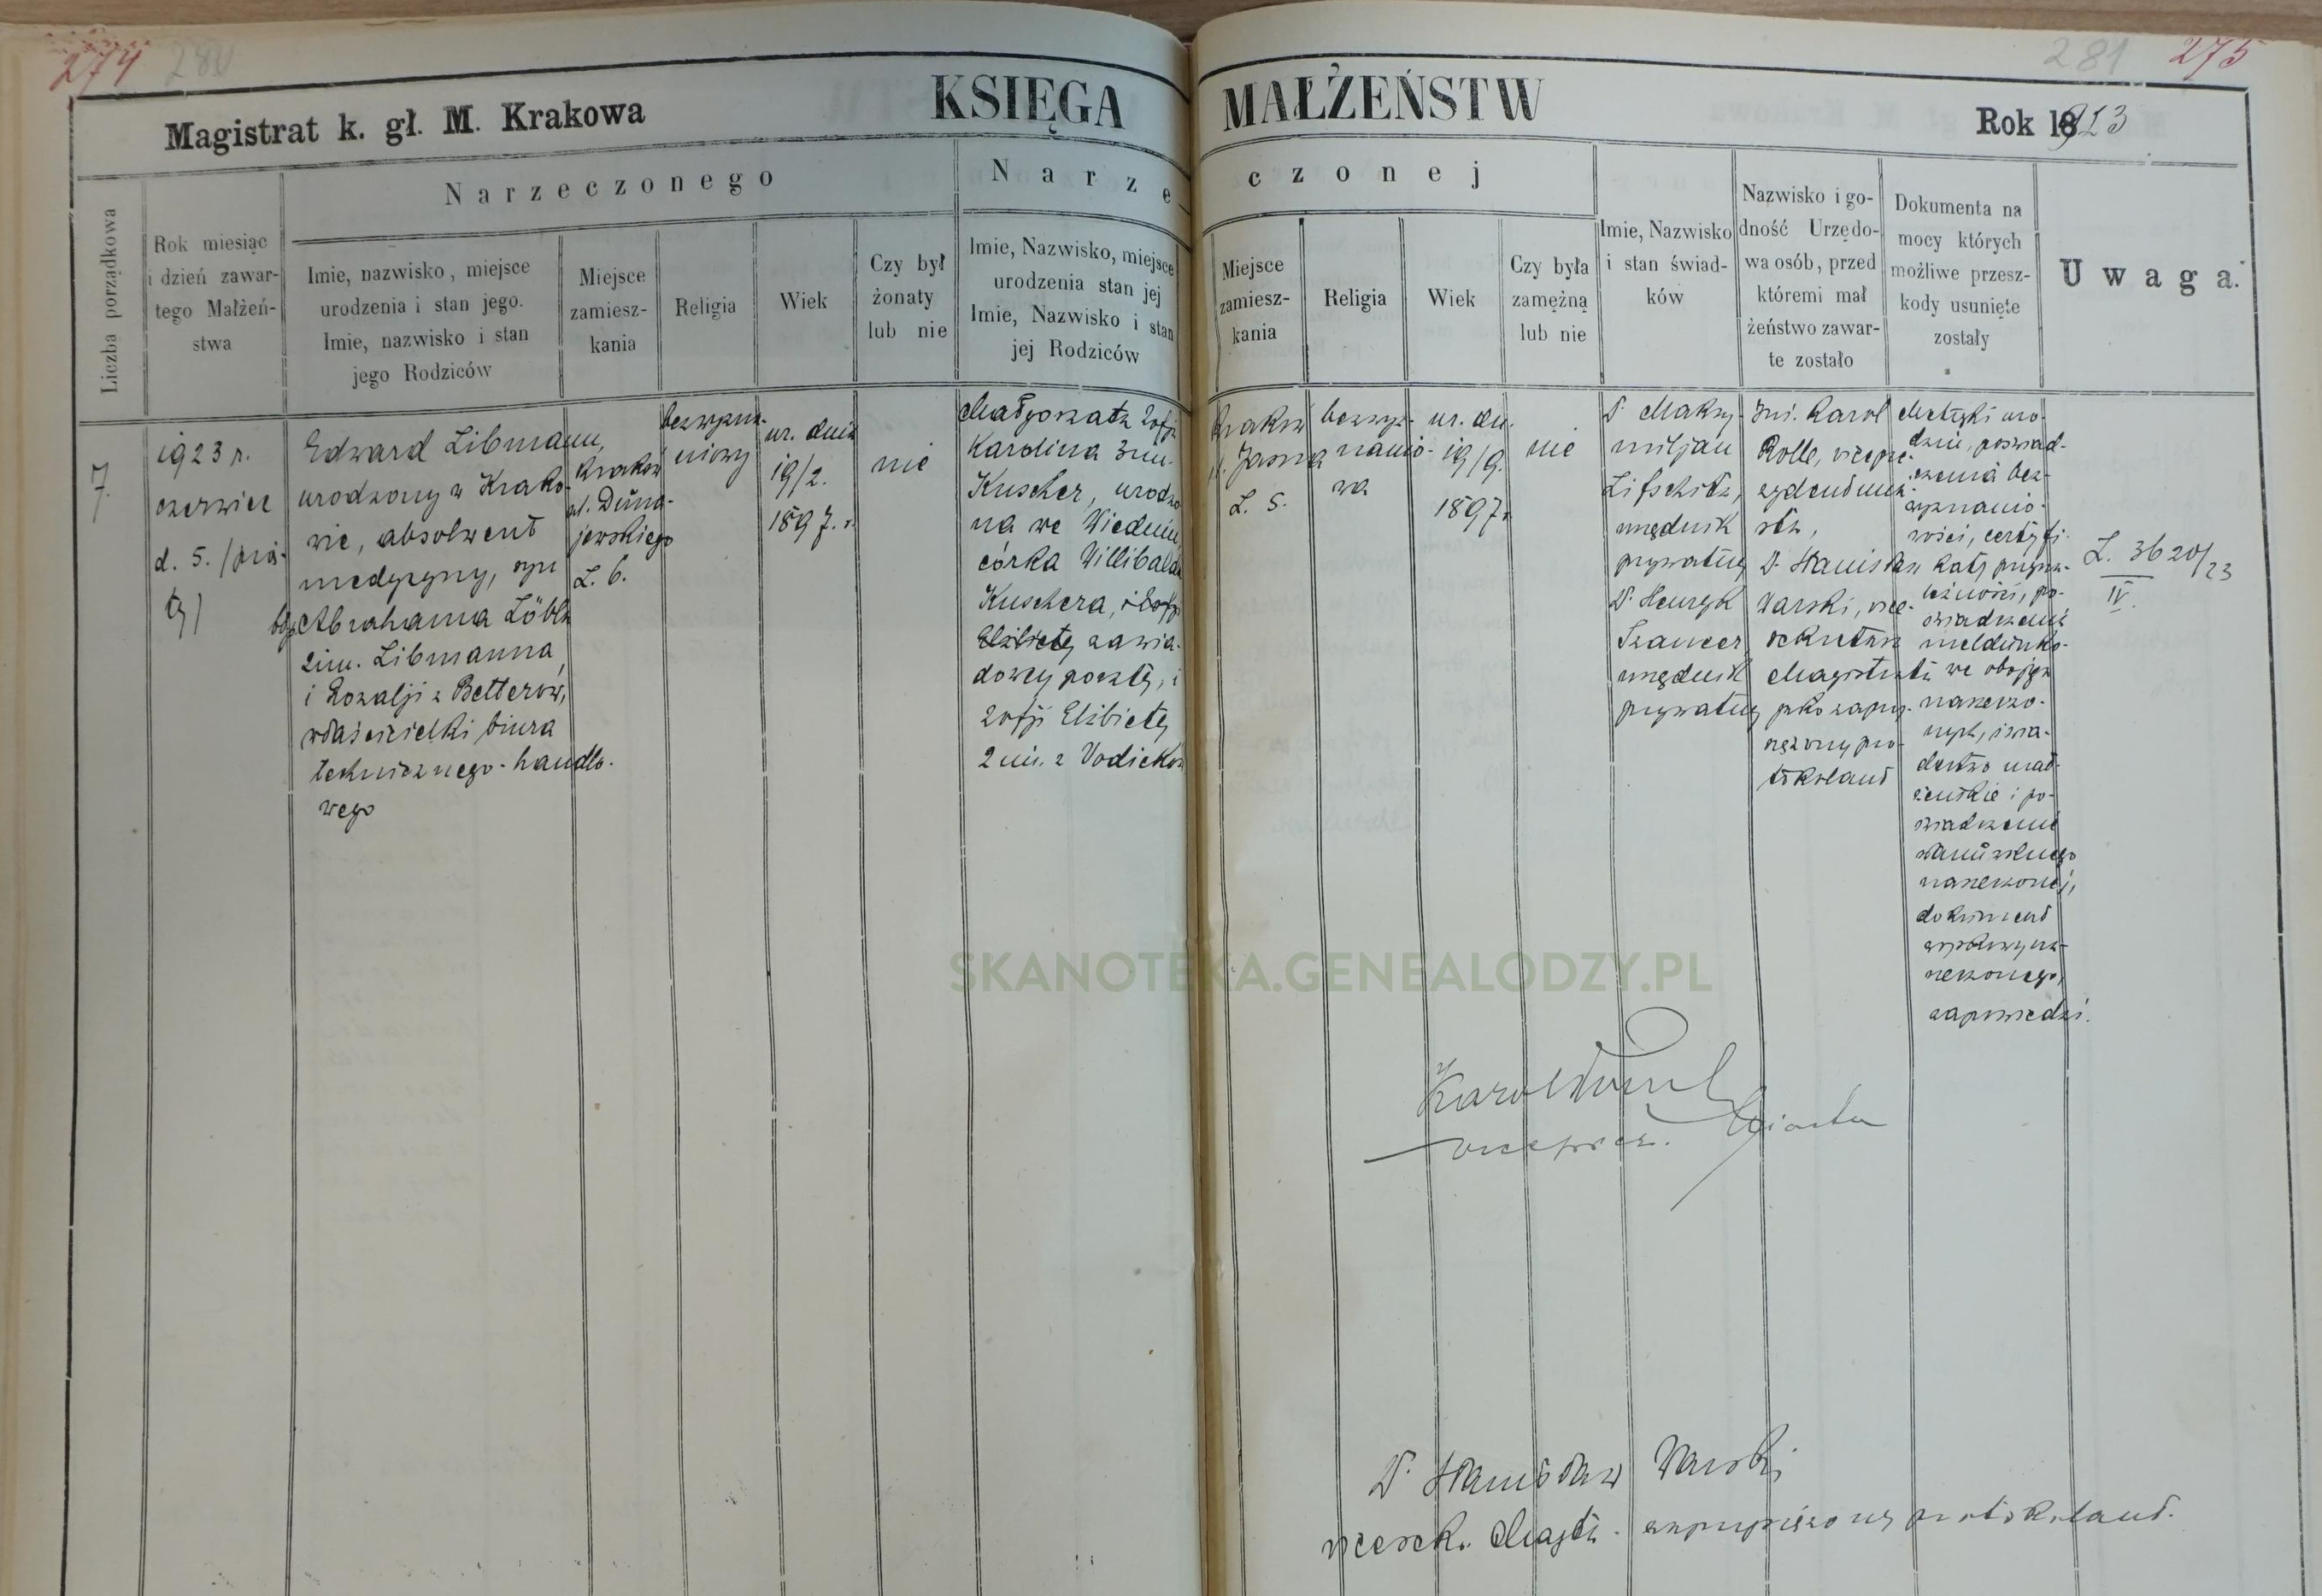 274 280
281 275
KSIĘGA MAŁŻEŃSTW
Magistrat k. gł. M. Krakowa
Rok 1923
Narzeczonego
Narzeczonej
Liczba porządkowa
Rok miesiąc
i dzień zawar-
tego Małżeń-
stwa
Imie, nazwisko, miejsce
urodzenia i stan jego.
Imie, nazwisko i stan
jego Rodziców
Miejsce
zamiesz-
kania
Religia
Wiek
Czy był
żonaty
lub nie
Imie, Nazwisko, miejsce
urodzenia stan jej
Imie, Nazwisko i stan
jej Rodziców
Miejsce
zamiesz-
kania
Religia
Wiek
Czy była
zamężną
lub nie
Imie, Nazwisko
i stan świad-
ków
Nazwisko i go-
dność Urzędo-
wa osób, przed
któremi mał
żeństwo zawar-
te zostało
Dokumenta na
mocy których
możliwe przesz-
kody usunięte
zostały
Uwaga.
7.
1923 r.
czerwiec
d. 5. /pią-
ty/
Edward Libmann,
urodzony w Krako-
wie, absolwent
medycyny, syn
Abrahama Löbla
2im. Libmanna,
i Rozalji z Betterów,
właścicielki biura
technicznego-handlo-
wego
Kraków
ul. Duna-
jewskiego
L. 6.
bezwyzna-
niowy
ur. dnia
19/2.
1897. r.
nie
Małgorzata Zofja
Karolina 3im.
Kuscher, urodzo
na we Wiedniu,
córka Willibalda
Kuschera, i Zofji
Elżbiety zawia-
dowcy poczty, i
Zofji Elżbiety
2im. z Vodicków
Kraków
ul. Jasna
L. 5.
bezwyz-
nanio-
wa
ur. dn.
19/9.
1897 r.
nie
Dr. Maksy-
miljan
Lifschitz,
urzędnik
prywatny
Dr. Henryk
Szancer,
urzędnik
prywatny
Inż. Karol
Rolle, vicepre-
zydent mia-
sta,
Dr. Stanisław
Warski, vice-
sekretarz
Magistratu
jako zaprzy-
siężony pro-
tokolant
Metryki uro-
dzin, poświad-
czenia bez-
wyznanio-
wości, certyfi-
katy przyna-
leżności, po-
świadczenia
meldunko-
we obojga
narzeczo-
nych, świa-
dectwo
i po-
świadczenie
narzeczonej,
dokument
wojskowy na-
rzeczonego,
zapowiedzi.
L. 3620/23
IV.
SKANOTEKA.GENEALODZY.PL
Karol Rolle
viceprez. Miasta
Dr. Stanisław Warski
vicesek. Magistr. zaprzysiężony protokolant.